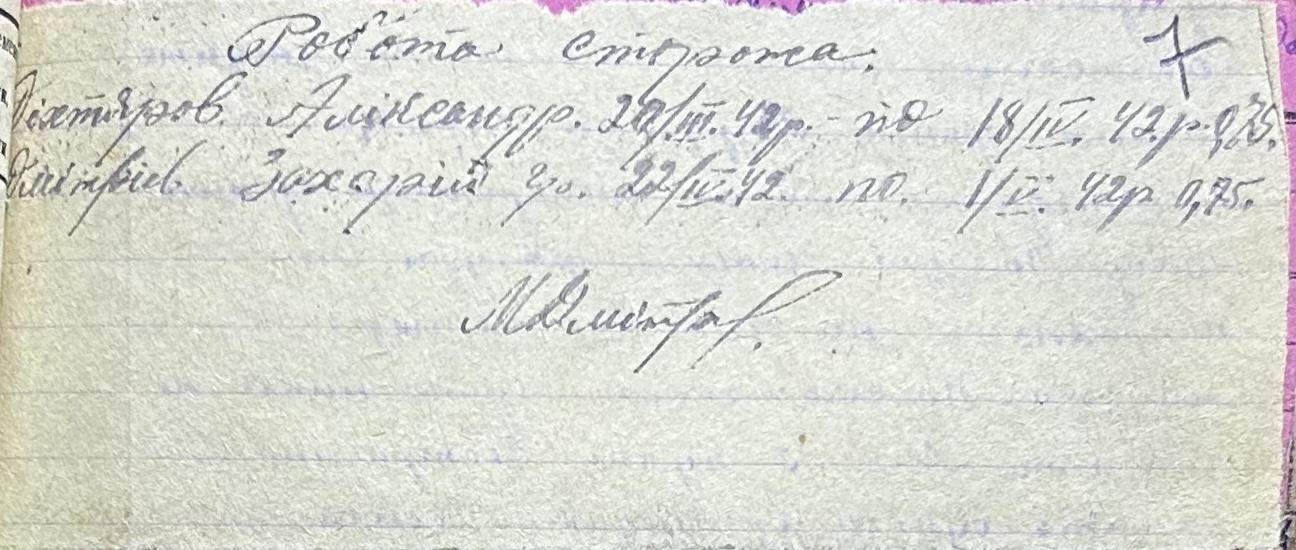 Робота сторожа. 7
Діхтяров Аліксандр. 20/III. 42 р. - по 18/IV. 42.р. 0,75.
Дмітрієв Захарій гр. 22/IV.42. по. 1/V. 42р 0,75.
МДмітр